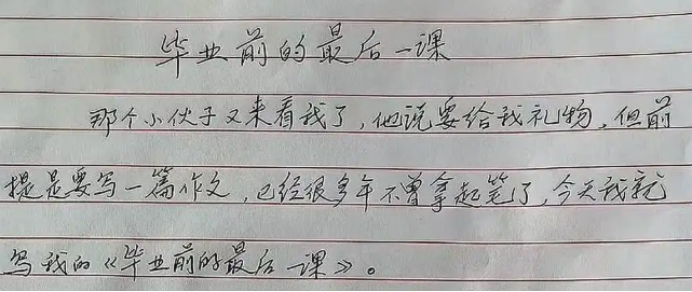 毕业前的最后一课
那个小伙子又来看我了，他说要给我礼物，但前
提是要写一篇作文，已经很多年不曾拿起笔了，今天我就
写我的《毕业前的最后一课》。